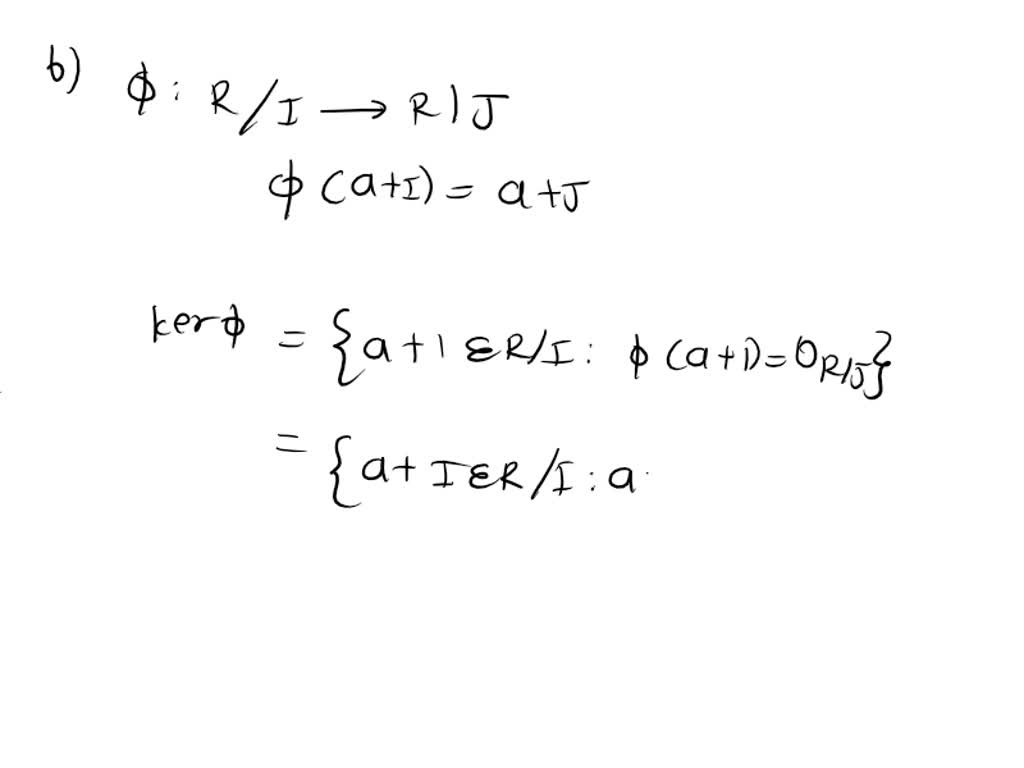 b) ϕ : R/I → R|J
ϕ (a+I) = a+J
kerϕ = {a+1 ɛR/I : ϕ (a+1)=0_{R/J}}
= {a+ IɛR/I : a